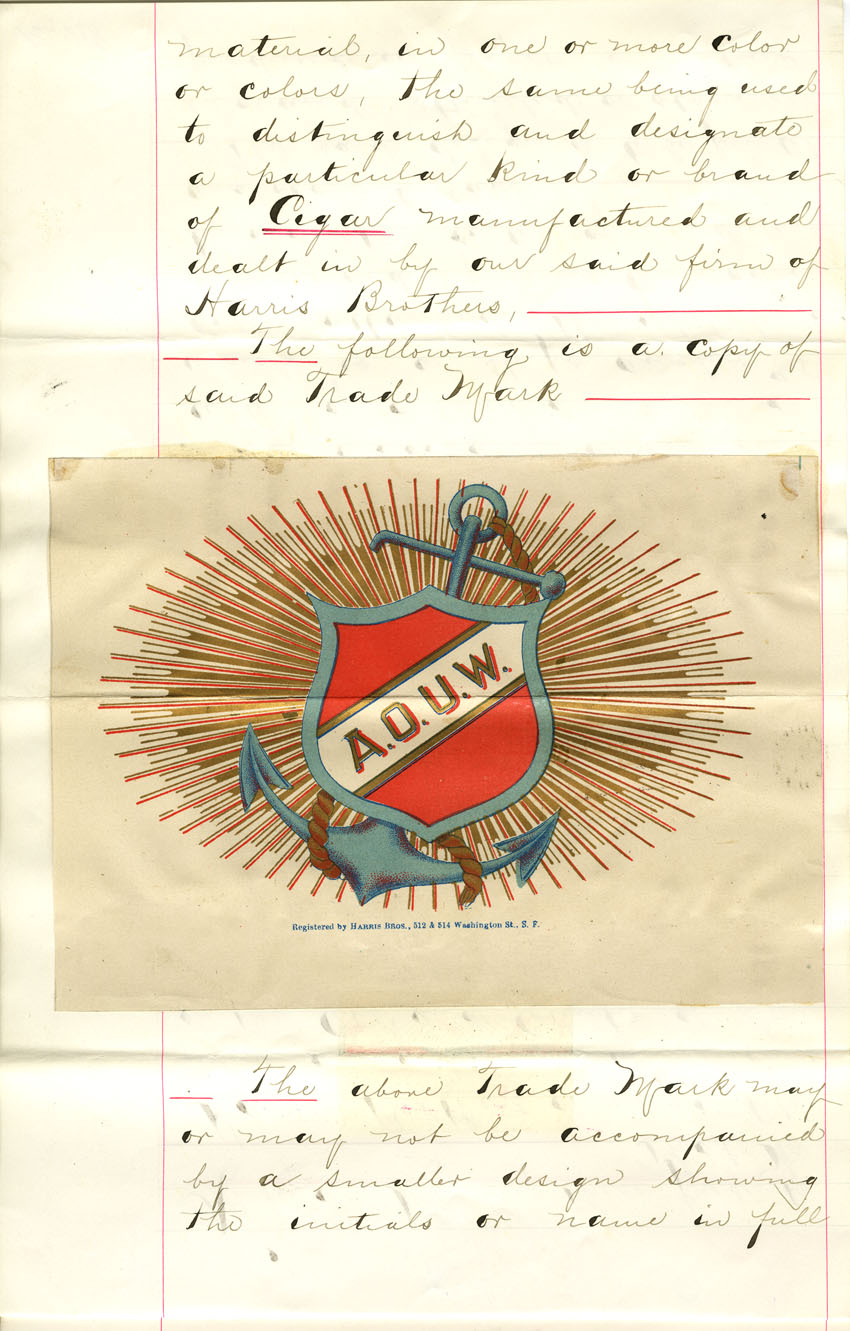 material, in one or more color
or colors, the same being used
to distinguish and designate
a particular kind or brand
of Cigar manufactured and
dealt in by our said firm of
Harris Brothers,
The following is a copy of
said Trade Mark
A.O.U.W.
Registered by HARRIS BROS., 512 & 514 Washington St., S. F.
The above Trade Mark may
or may not be accompanied
by a smaller design showing
the initials or name in full